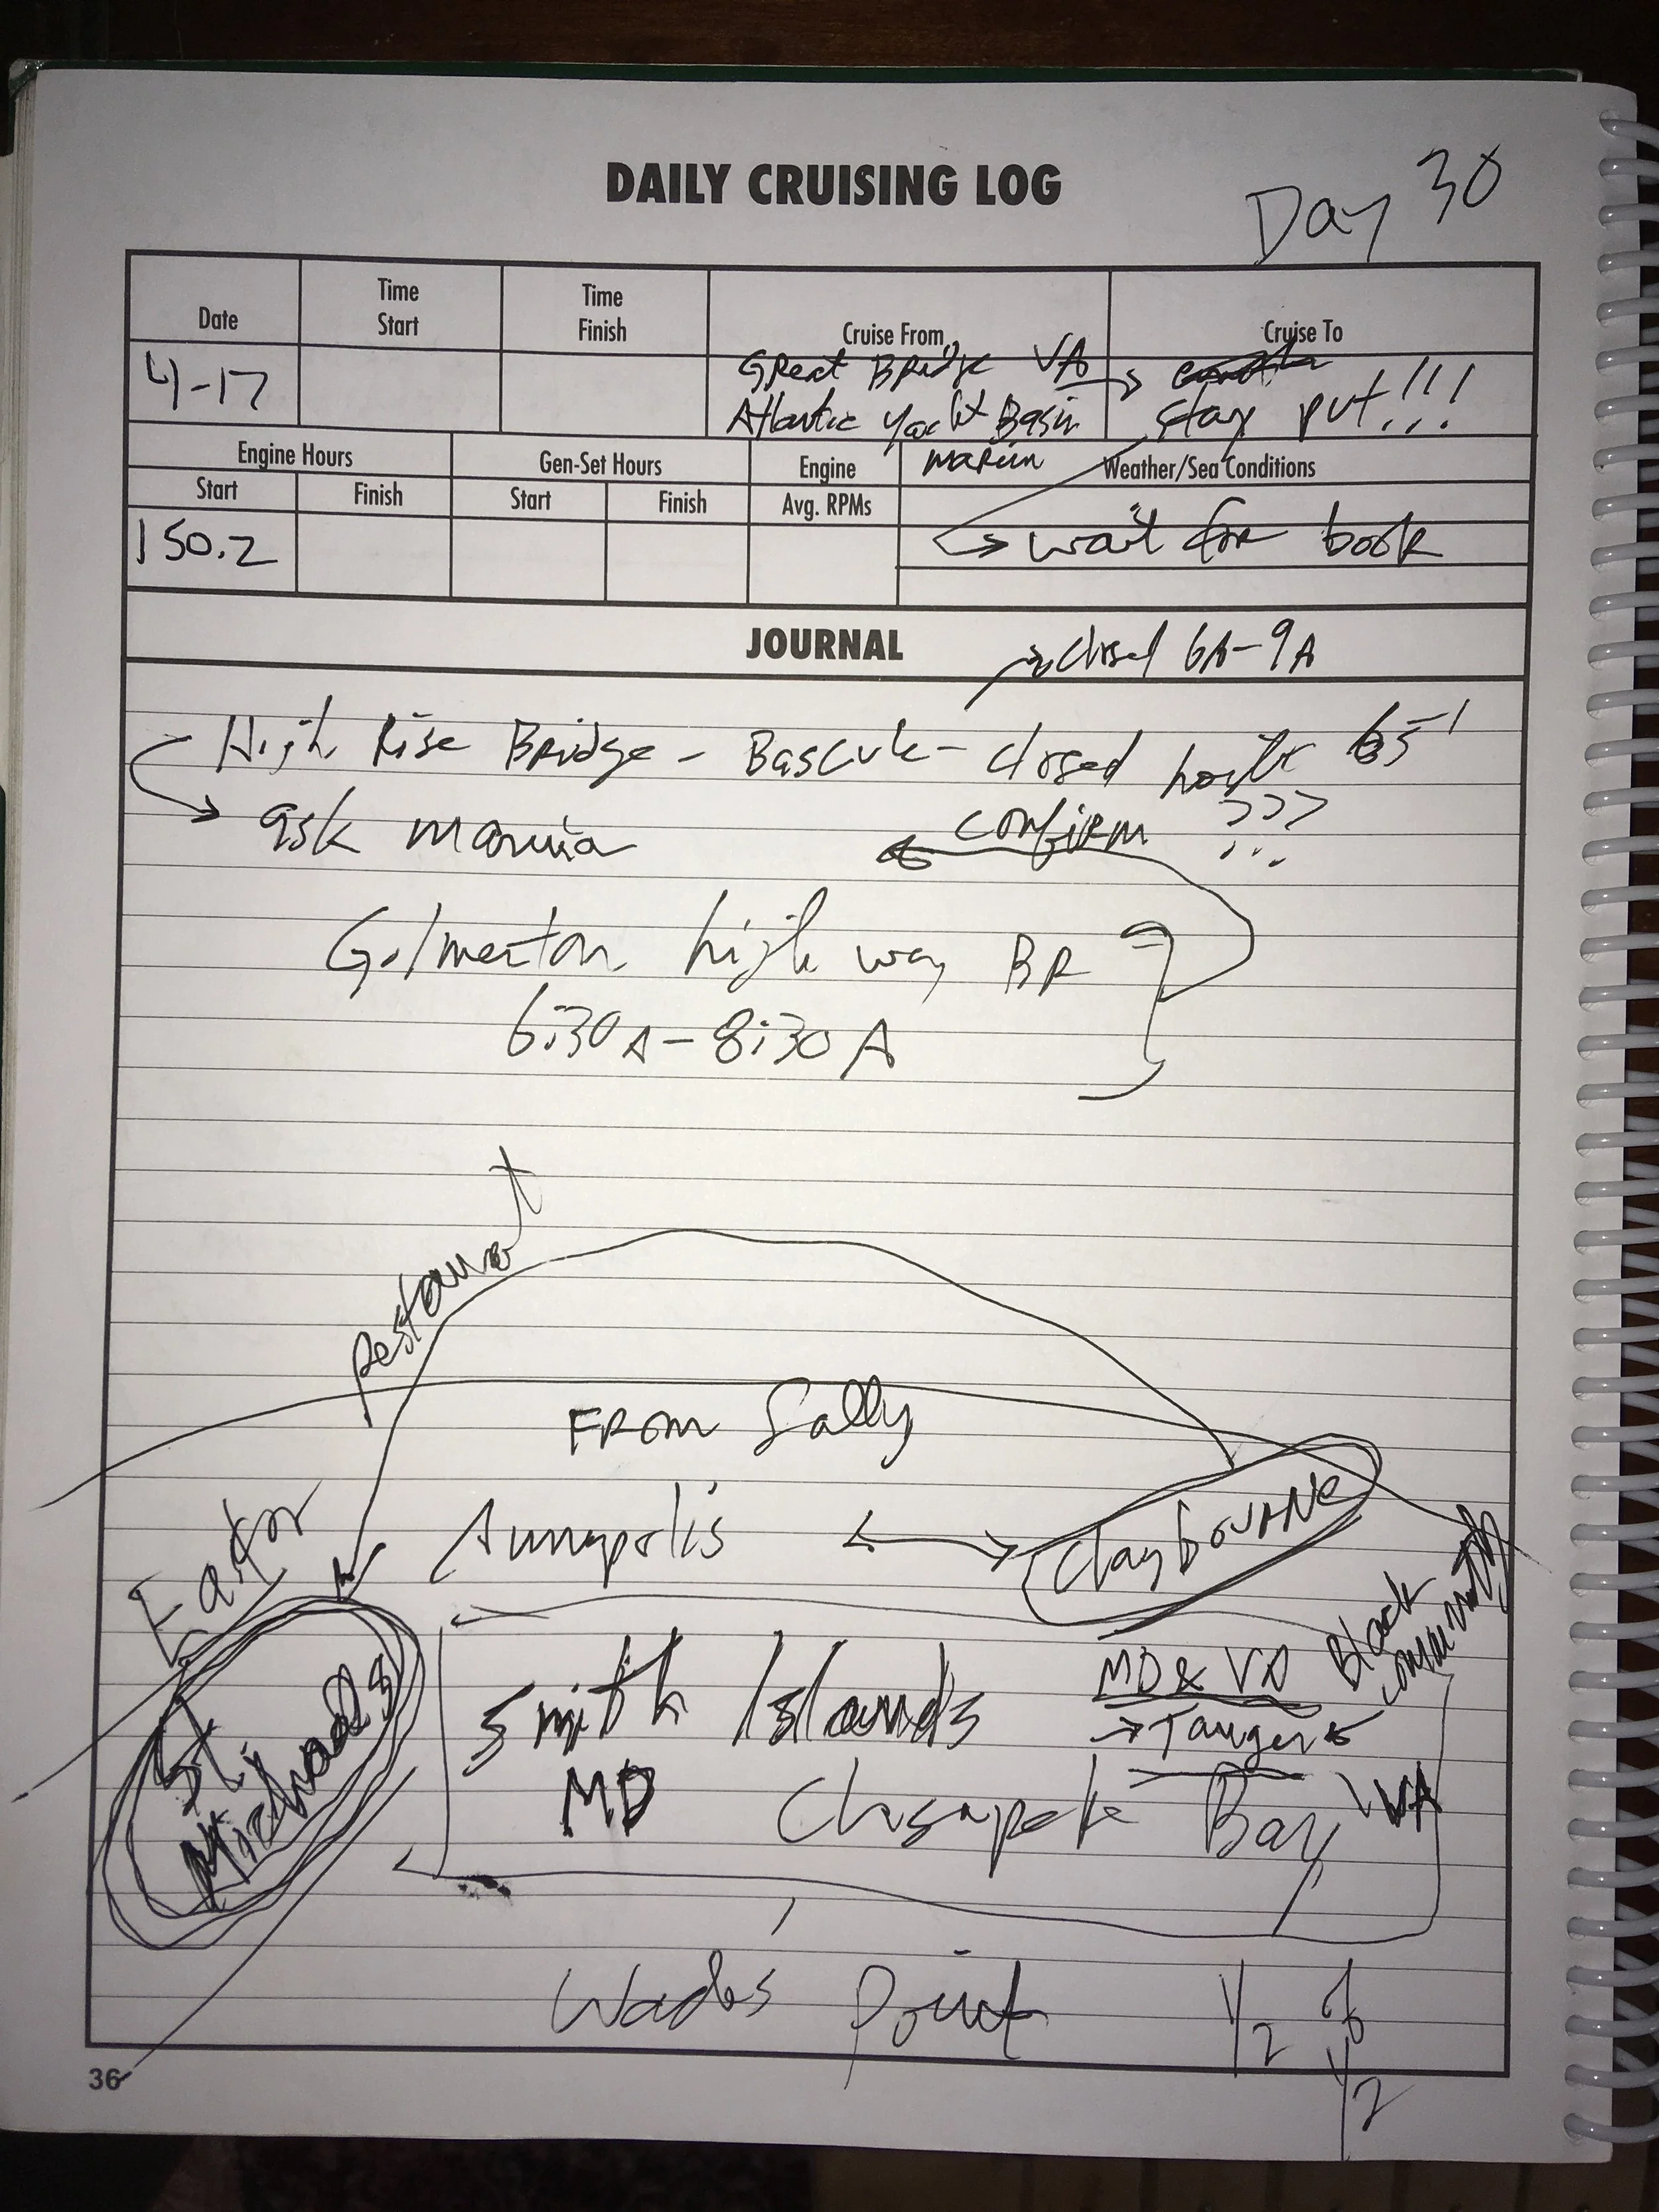 DAILY CRUISING LOG
Day 30
Date
Time Start
Time Finish
Cruise From
Cruise To
4-17
Great Bridge VA →
Atlantic Yacht Basin
stay put!!!
Engine Hours
Gen-Set Hours
Engine
Weather/Sea Conditions
Start
Finish
Start
Finish
Avg. RPMs
150.2
→ wait for book
JOURNAL
→ closed 6A-9A
High Rise Bridge - Bascule - closed 65'
→ ask marina
confirm ???
Gilmerton high way BR
6:30A-8:30A
Restaurant
FROM Sally
Annapolis ↔ Claybourne
Black community
St. Michaels
Smith Islands
MD & VA
→ Tanger ←
MD
Chesapeke Bay
VA
Wades Point
1/2 of 1/2
36